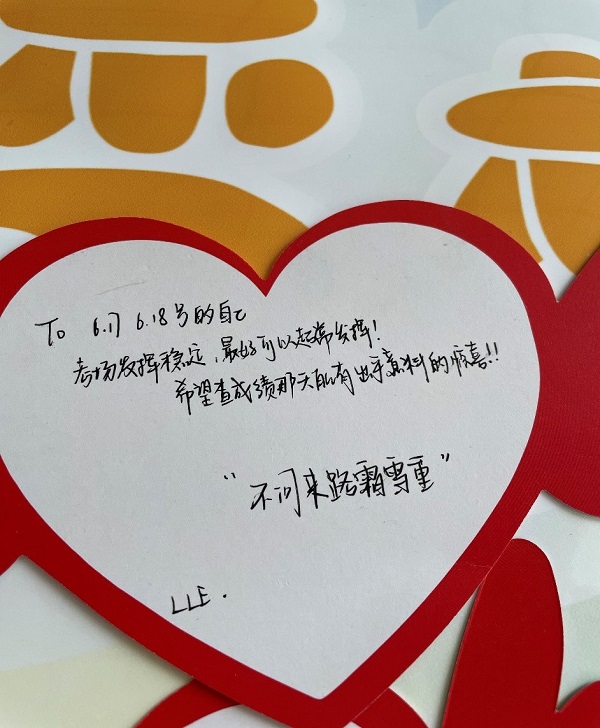 To 6.17 6.18号的自己
考场发挥稳定,最好可以起常发挥!
希望查成绩那天能有出乎意料的惊喜!!
“不问来路霜雪重”
LLE.